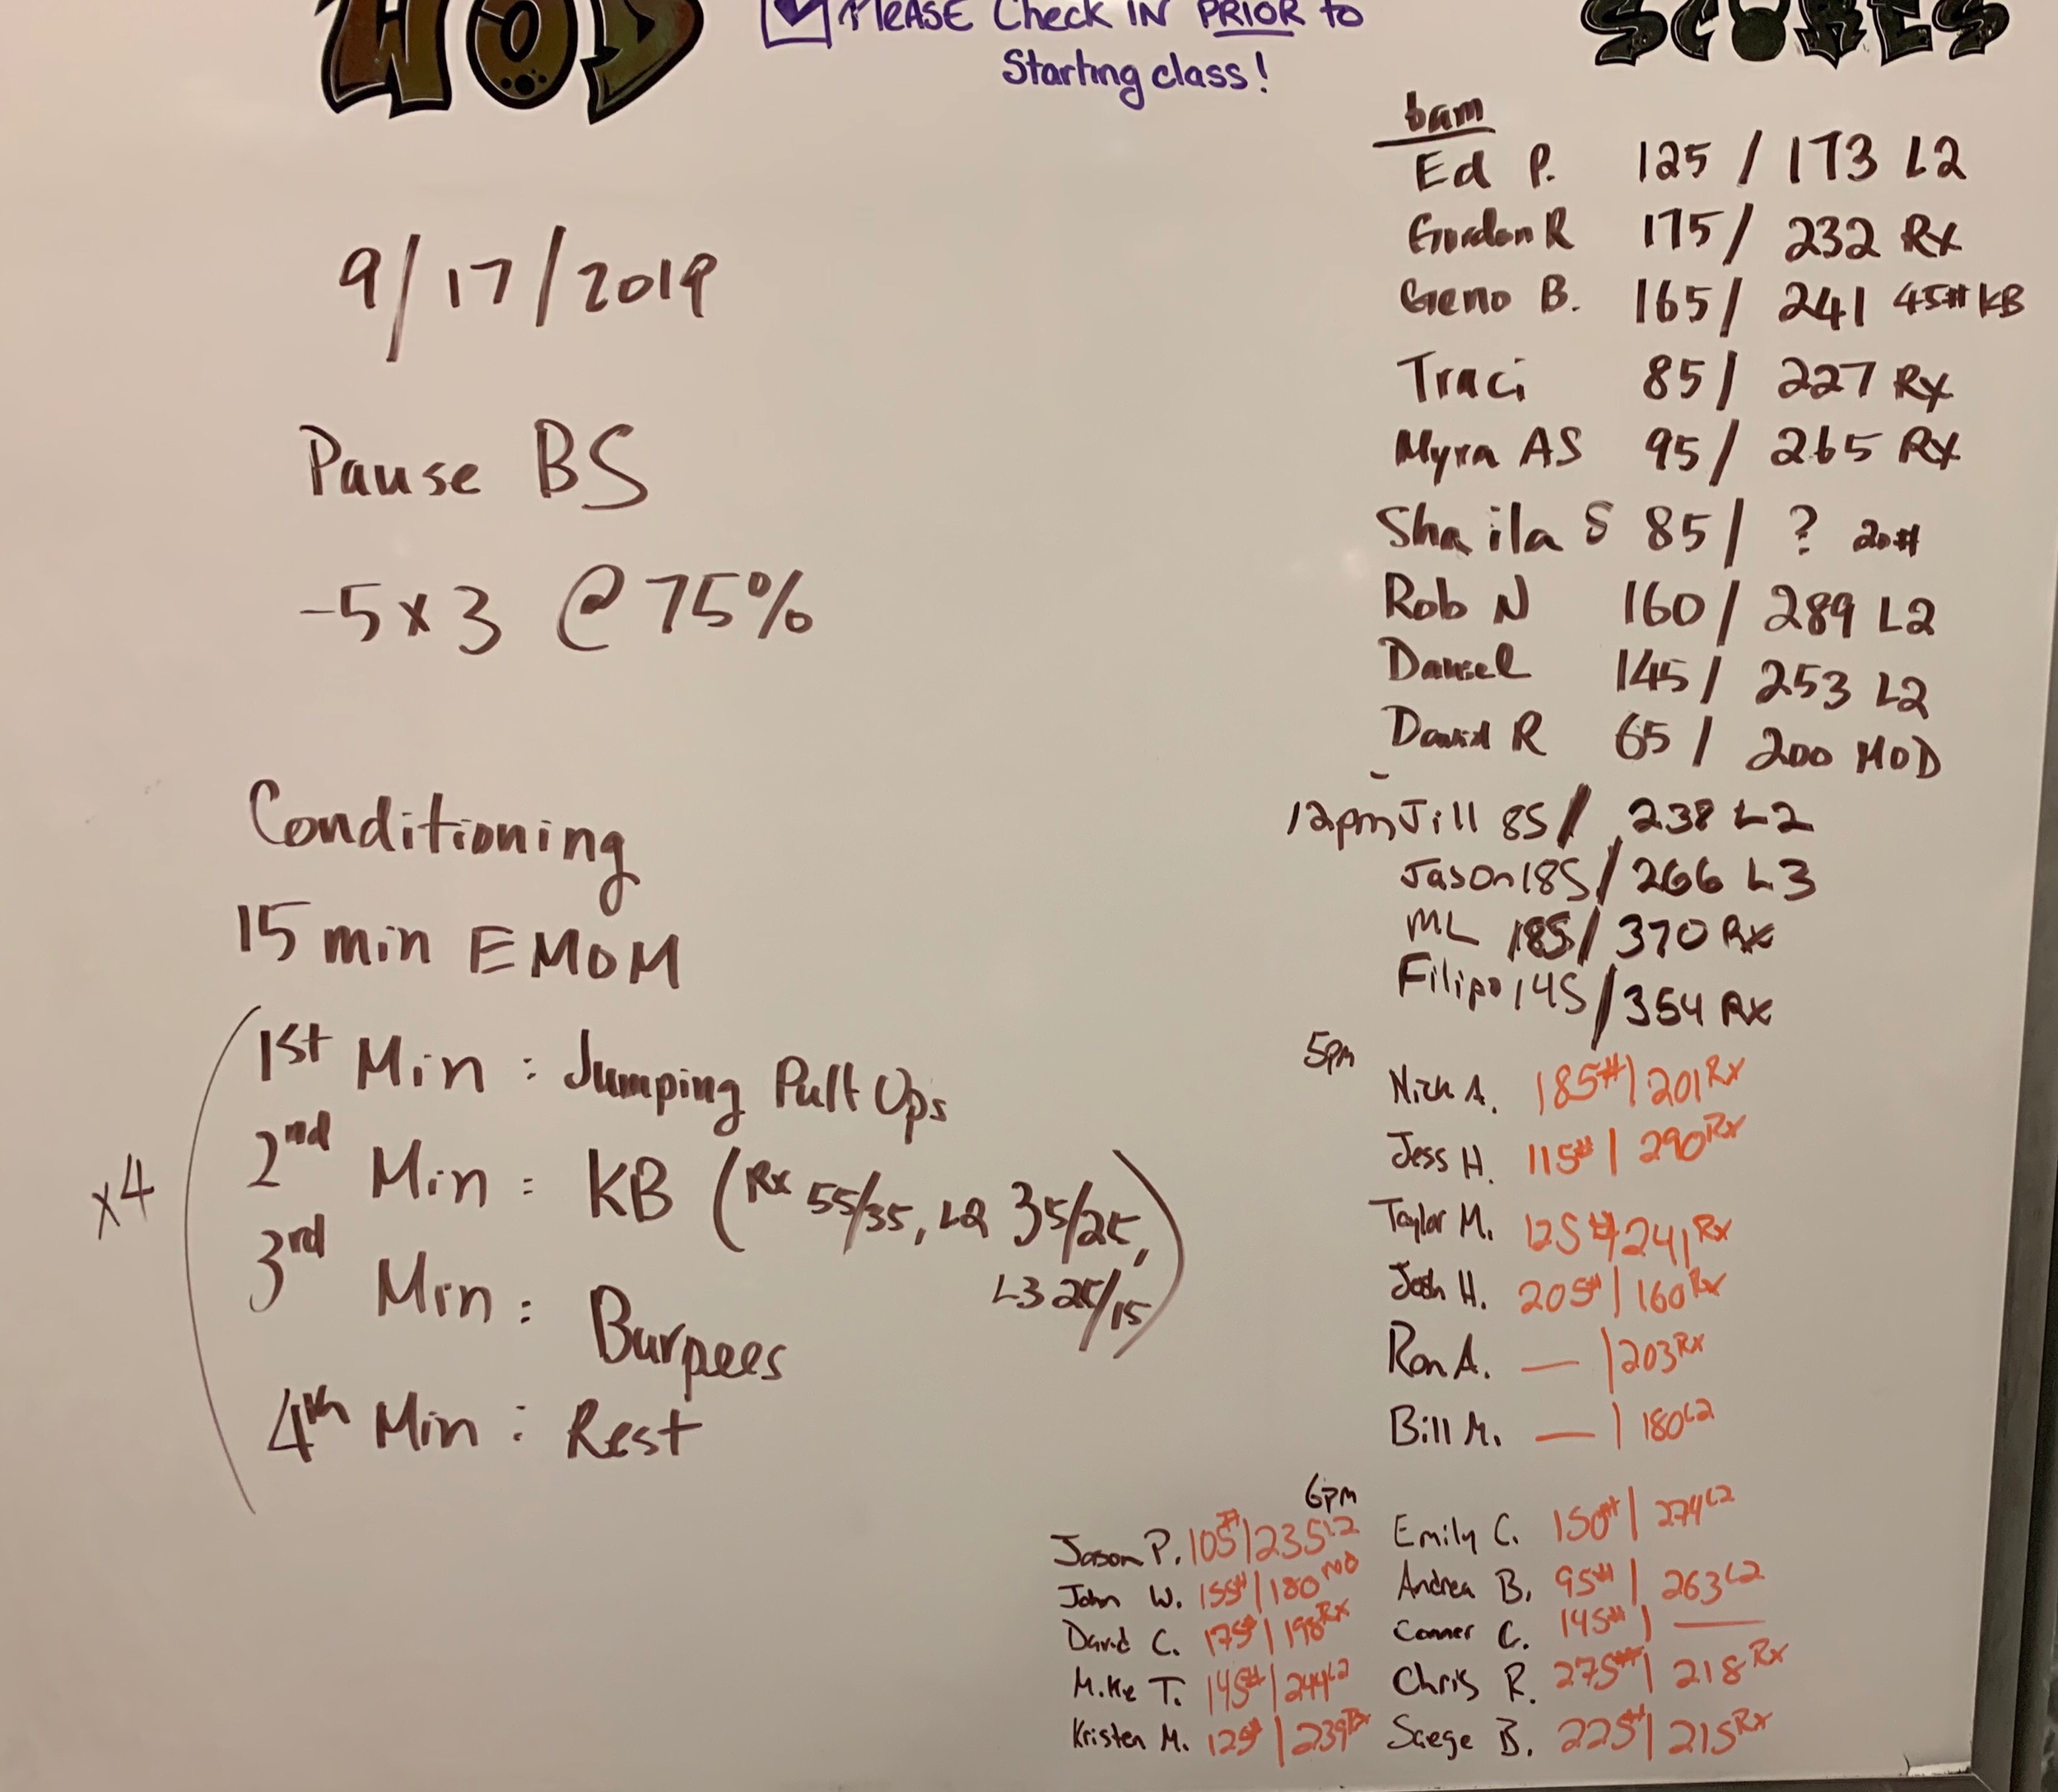 WOD
PLEASE Check IN PRIOR to
Starting class!
9/17/2019
Pause BS
-5x3 @ 75%
Conditioning
15 min EMOM
x4
1st Min : Jumping Pull Ups
2nd Min : KB (Rx 55/35, L2 35/25,
L3 25/15)
3rd Min : Burpees
4th Min : Rest
SCORES
6am
Ed P. 125 / 173 L2
Gordon R 175 / 232 Rx
Geno B. 165 / 241 45# KB
Traci 85 / 227 Rx
Myra AS 95 / 265 Rx
Shaila S 85 / ? 20#
Rob N 160 / 289 L2
Daniel 145 / 253 L2
David R 65 / 200 MOD
12pm Jill 85 / 238 L2
Jason 185 / 266 L3
ML 185 / 370 Rx
Filipo 145 / 354 Rx
5pm
Nick A. 185# | 201 Rx
Jess H. 115# | 290 Rx
Taylor M. 125# | 241 Rx
Josh H. 205# | 160 Rx
Ron A. — | 203 Rx
Bill M. — | 180 L2
6pm
Emily C. 150# | 274 L2
Andrea B. 95# | 263 L2
Conner C. 145# | —
Chris R. 275# | 218 Rx
Saege B. 225# | 215 Rx
Jason P. 105# | 235 L2
John W. 155# | 180
David C. 175# | 198 Rx
Mike T. 145# | 244 L2
Kristen M. 125# | 239 Rx